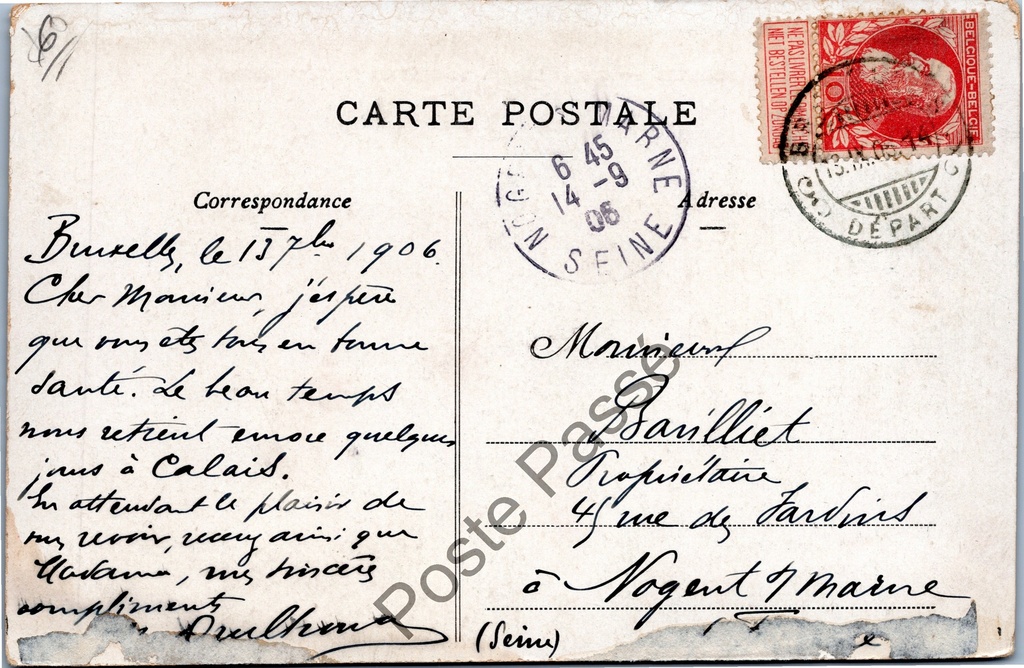 6/1
CARTE POSTALE
BELGIQUE-BELGIE
NE PAS LIVRER LE DIMANCHE
NIET BESTELLEN OP ZONDAG
10
NOGENT MARNE
6 45
14 -9
06
SEINE
DÉPART
Correspondance
Adresse
Bruxelles, le 13 7bre 1906.
Cher Monsieur, j'espère
que vous etes tous en bonne
santé. Le beau temps
nous retient encore quelques
jours à Calais.
En attendant le plaisir de
vous revoir, recevez ainsi que
Madame, mes sincères
compliments
Monsieur
Barilliet
Propriétaire
45 rue des Jardins
à Nogent s/ Marne
(Seine)
Poste Passé